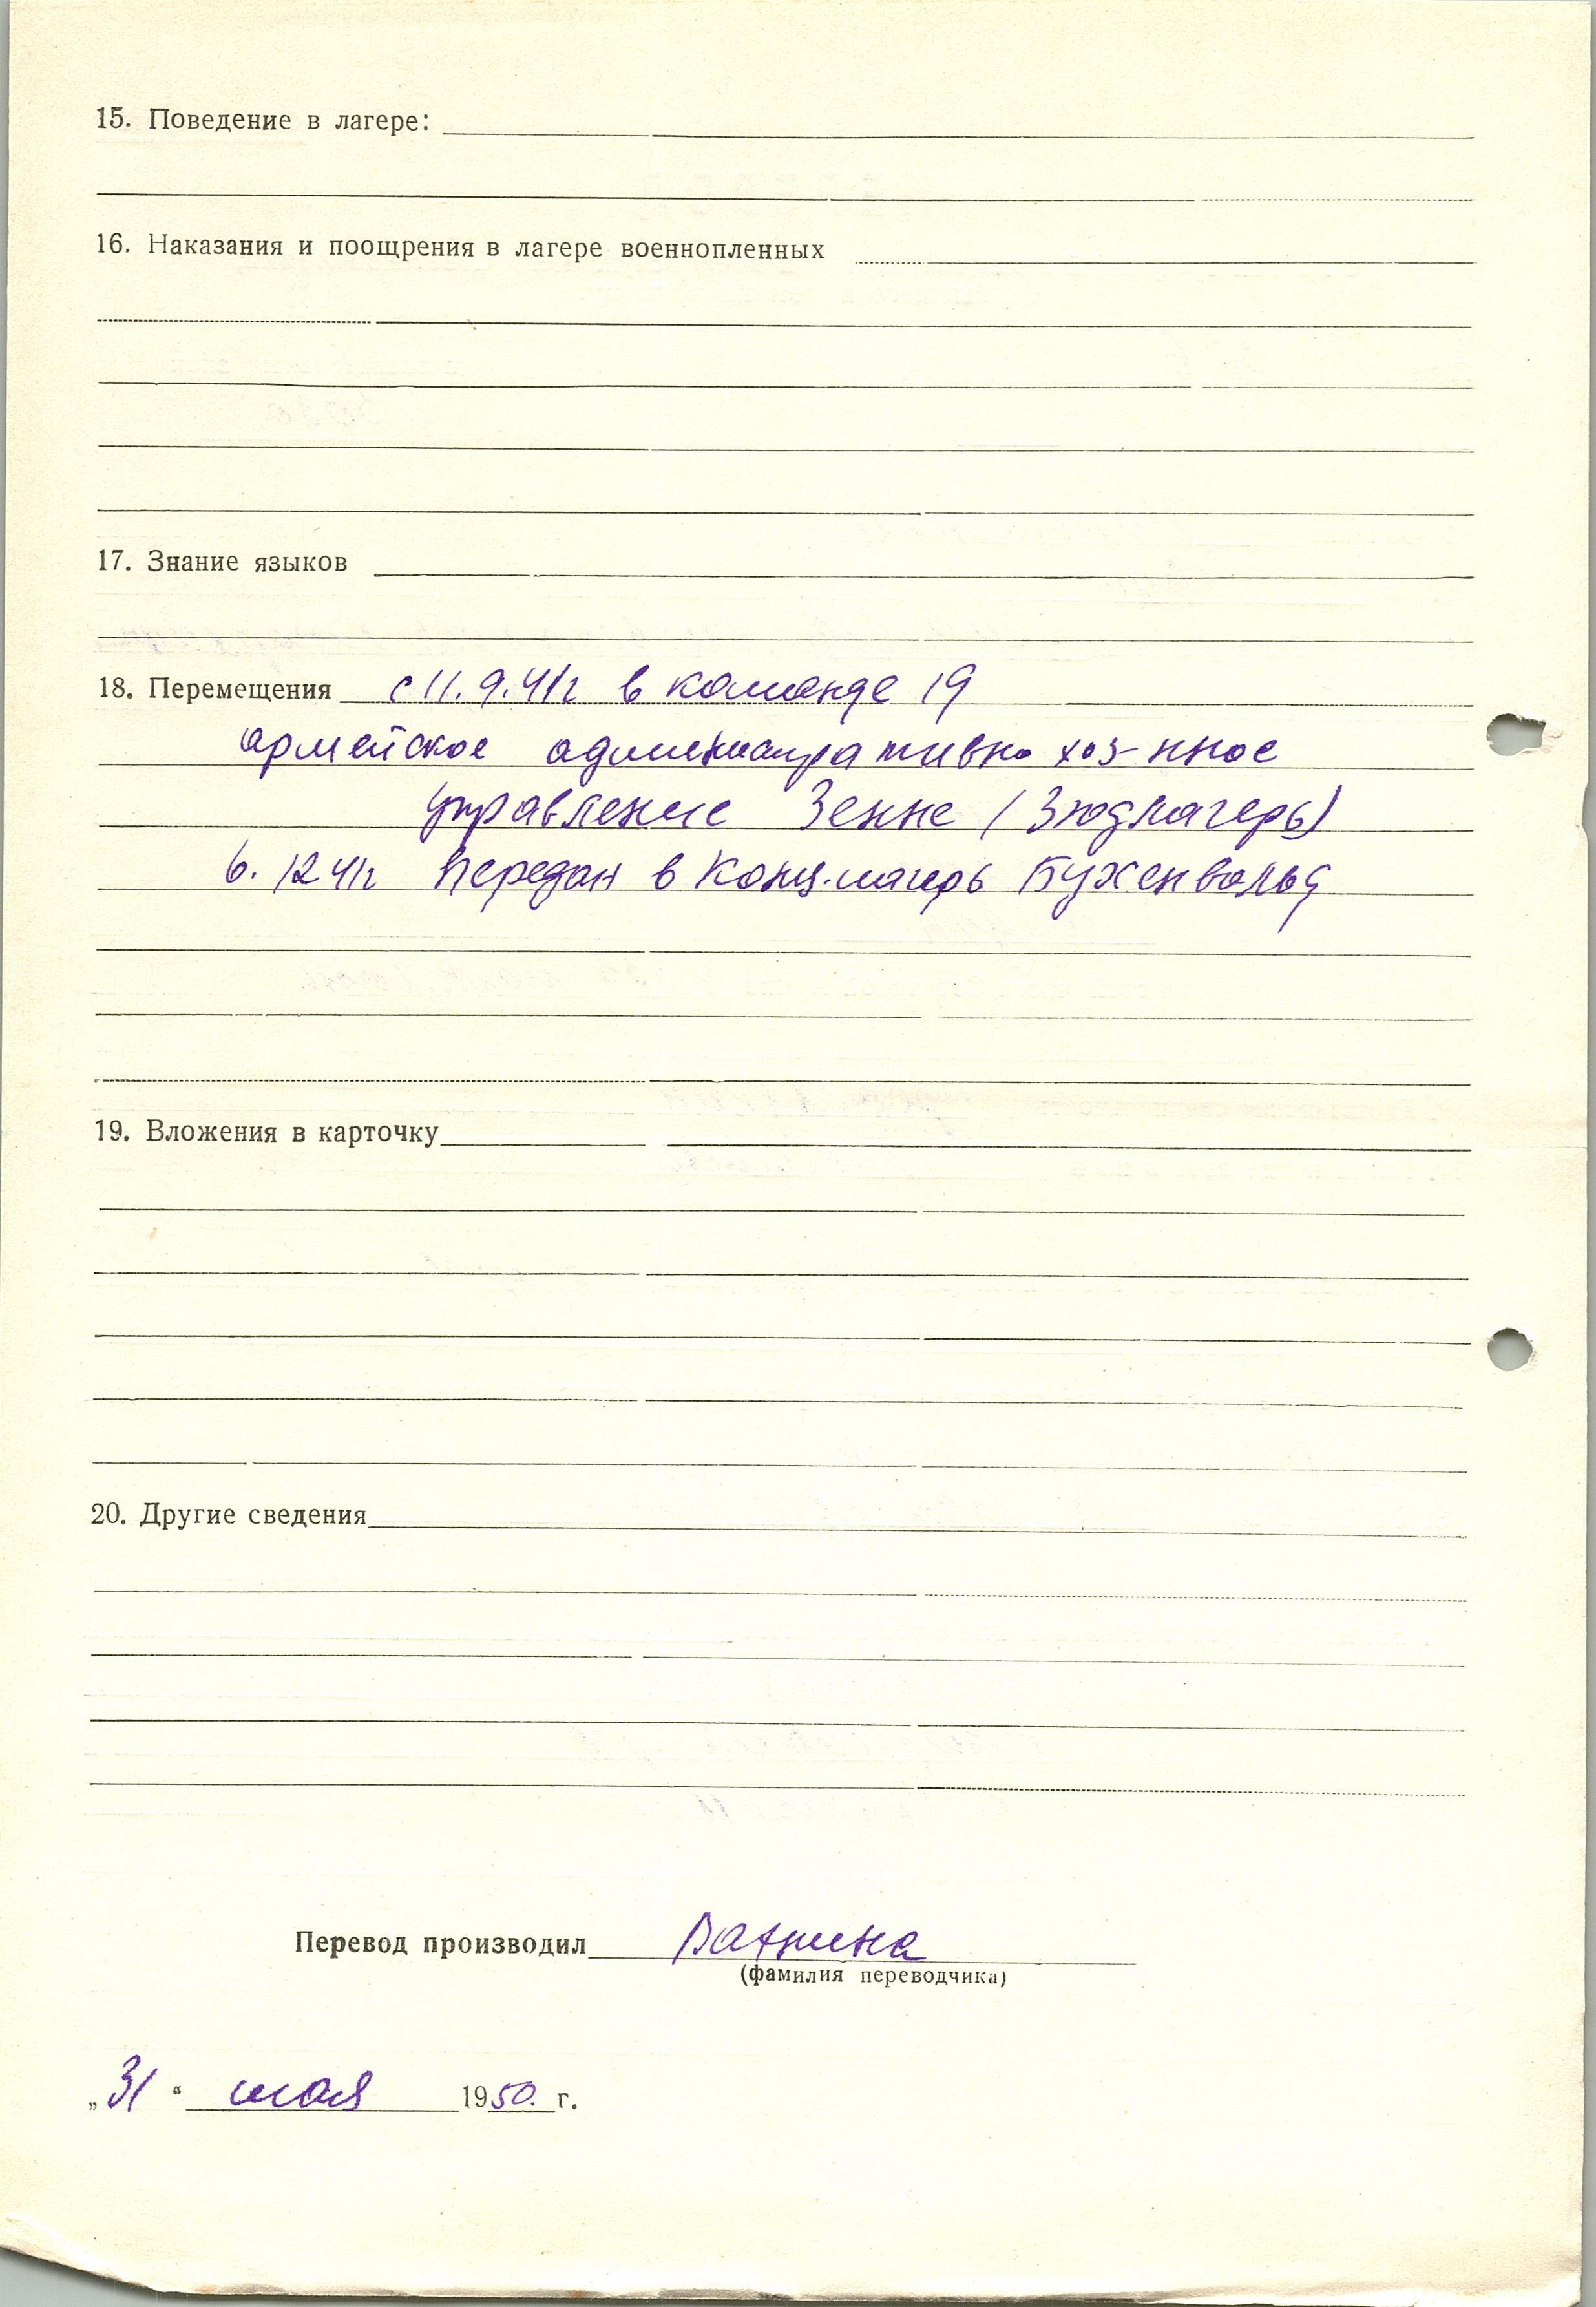 15. Поведение в лагере:
16. Наказания и поощрения в лагере военнопленных
17. Знание языков
18. Перемещения с 11.9.41г в команде 19
армейское административно хоз-нное
управление Зенне (Зюдлагерь)
6. 12 41г передан в Конц.лагерь Бухенвальд
19. Вложения в карточку
20. Другие сведения
Перевод производил
(фамилия переводчика)
„31“ мая 1950. г.